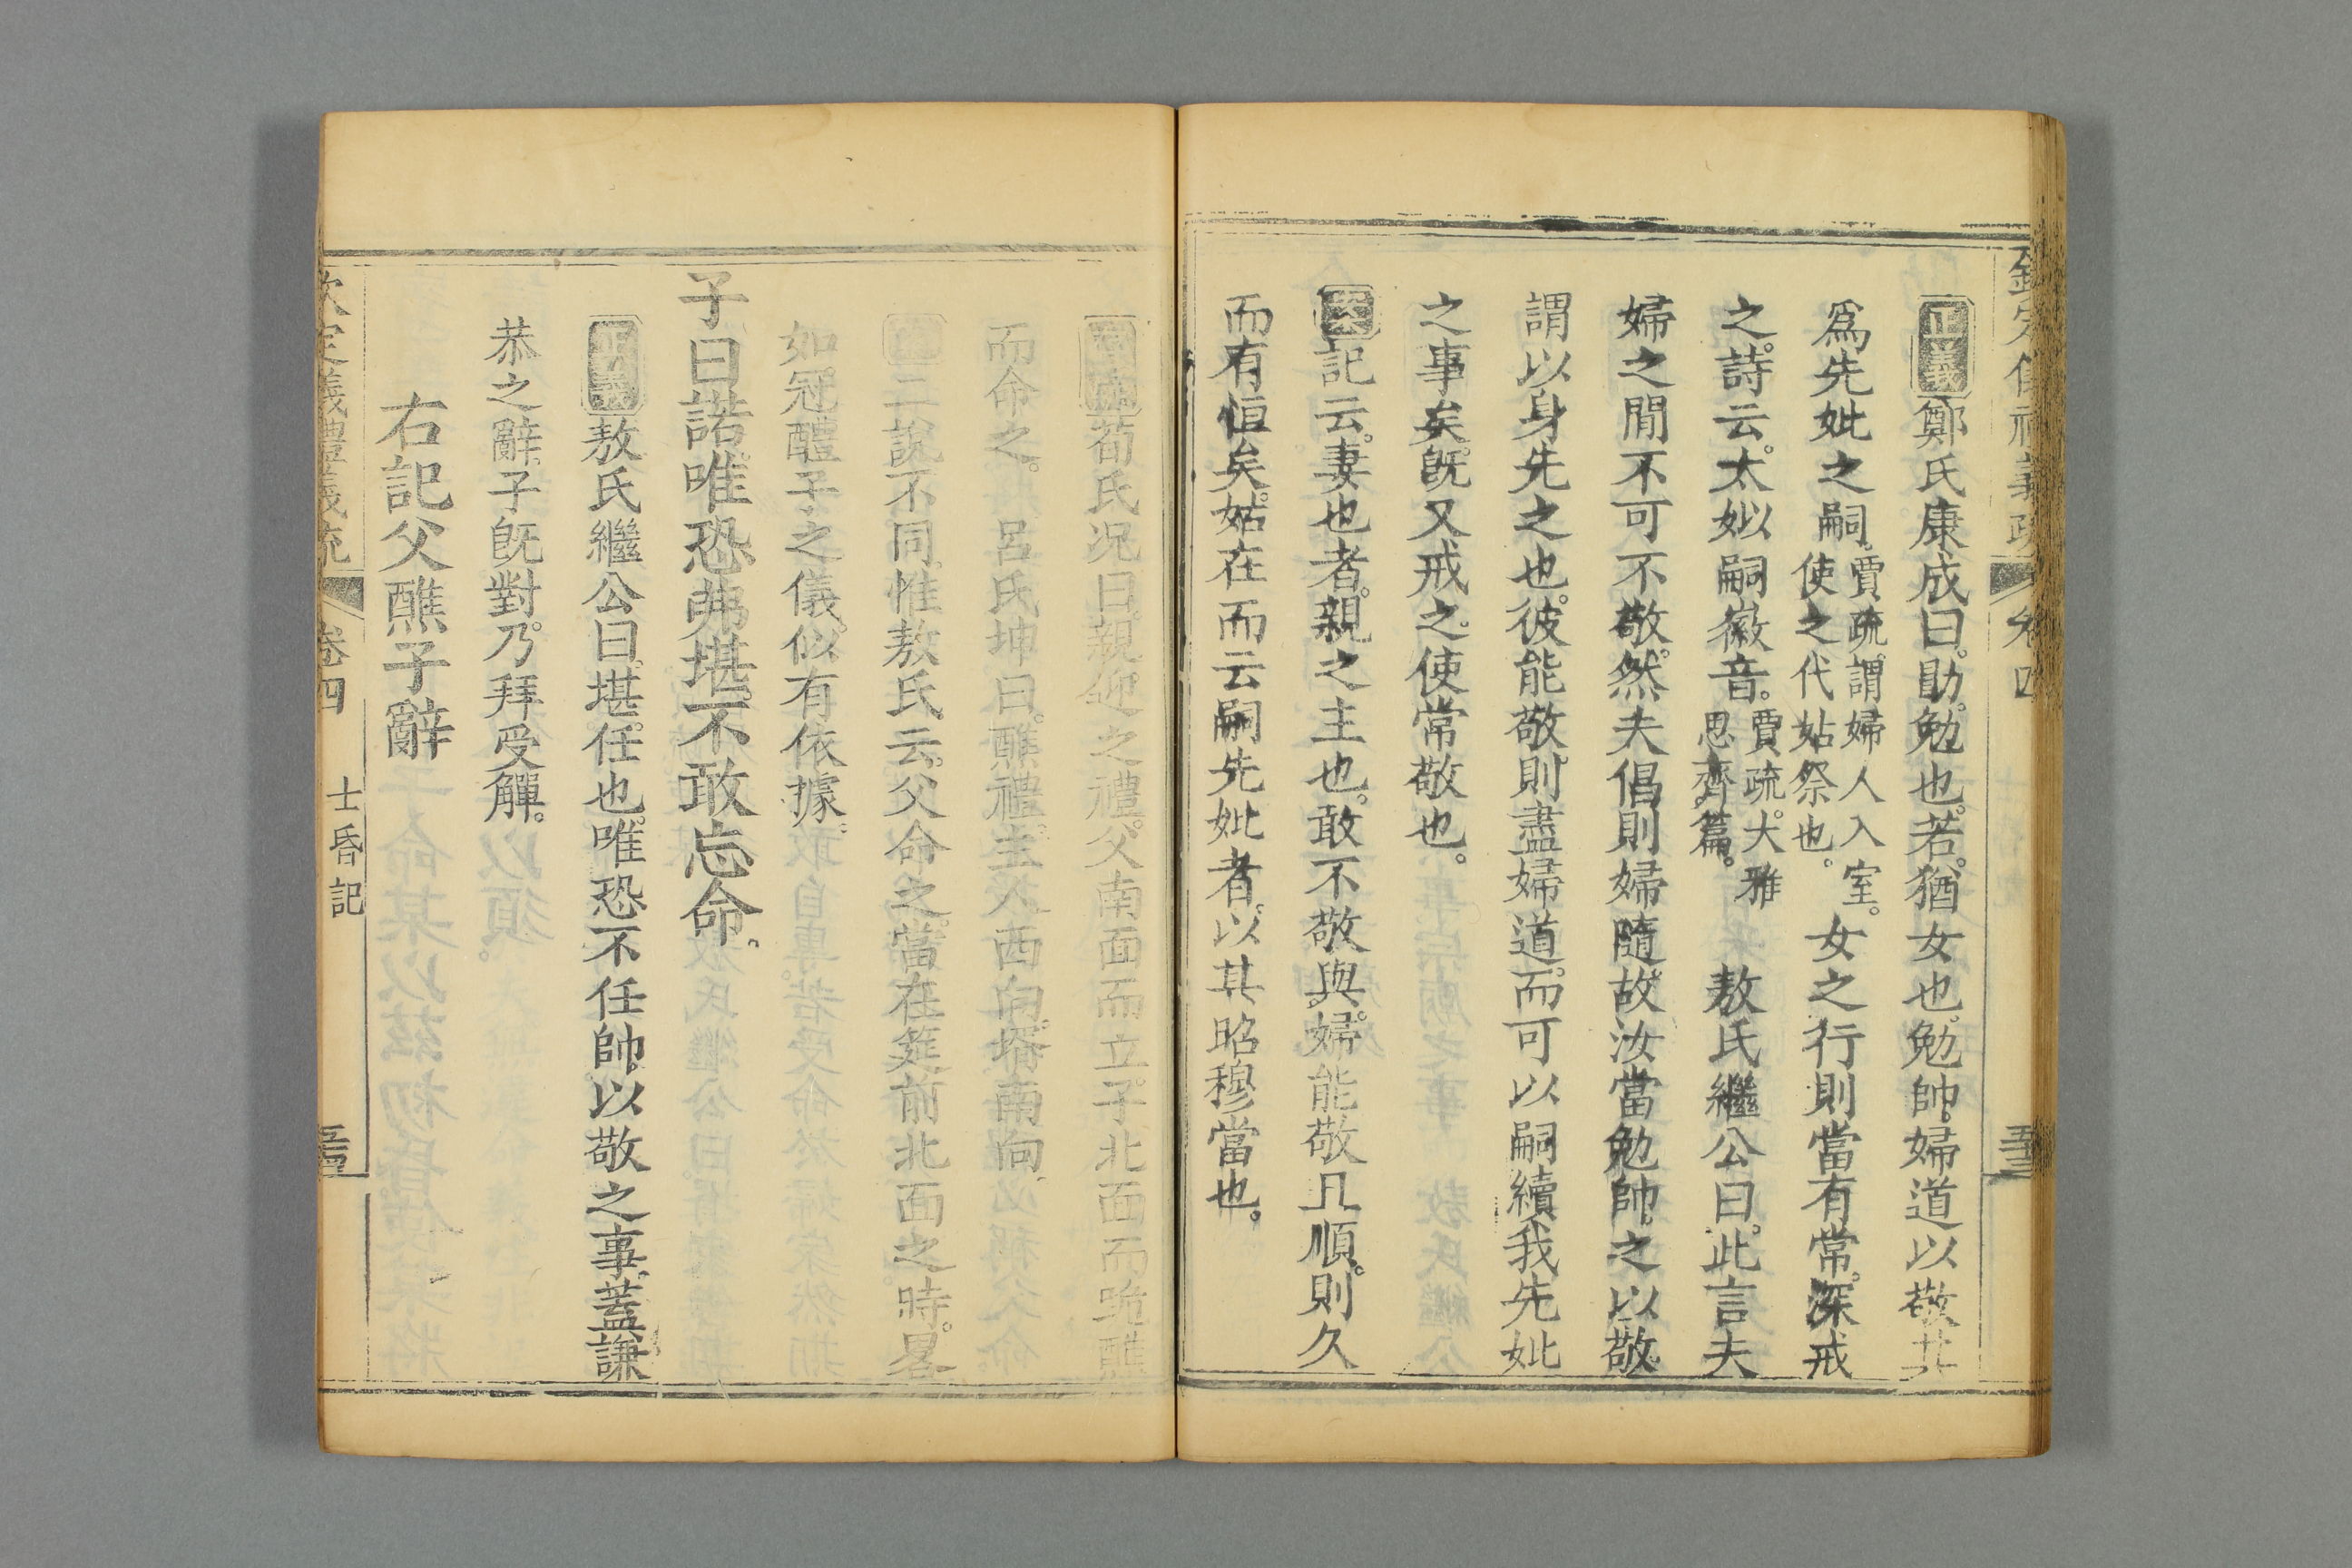 正義鄭氏康成曰。勖。勉也。若。猶女也。勉帥。婦道以敬其
爲先妣之嗣。賈疏。謂婦人入室。使之代姑祭也。女之行則當有常。深戒
之。詩云。太姒嗣徽音。賈疏。大雅思齊篇。敖氏繼公曰。此言夫
婦之閒不可不敬。然夫倡則婦隨。故汝當勉帥之以敬。
謂以身先之也。彼能敬。則盡婦道。而可以嗣續我先妣
之事矣。旣又戒之。使常敬也。
案記云。妻也者。親之主也。敢不敬與。婦能敬且順。則久
而有恒矣。姑在而云嗣先妣者。以其昭穆當也。
荀氏况曰。親迎之禮。父南面而立。子北面而跪。醮
而命之。呂氏坤曰。醮禮。主人西向。壻南向。
二說不同。惟敖氏云。父命之。當在筵前北面之時。畧
如冠醴子之儀。似有依據。
子曰諾。唯恐弗堪。不敢忘命。
正義敖氏繼公曰。堪。任也。唯恐不任帥以敬之事。蓋謙
恭之辭。子旣對。乃拜受觶。
右記父醮子辭
欽定儀禮義疏
卷四
士昏記